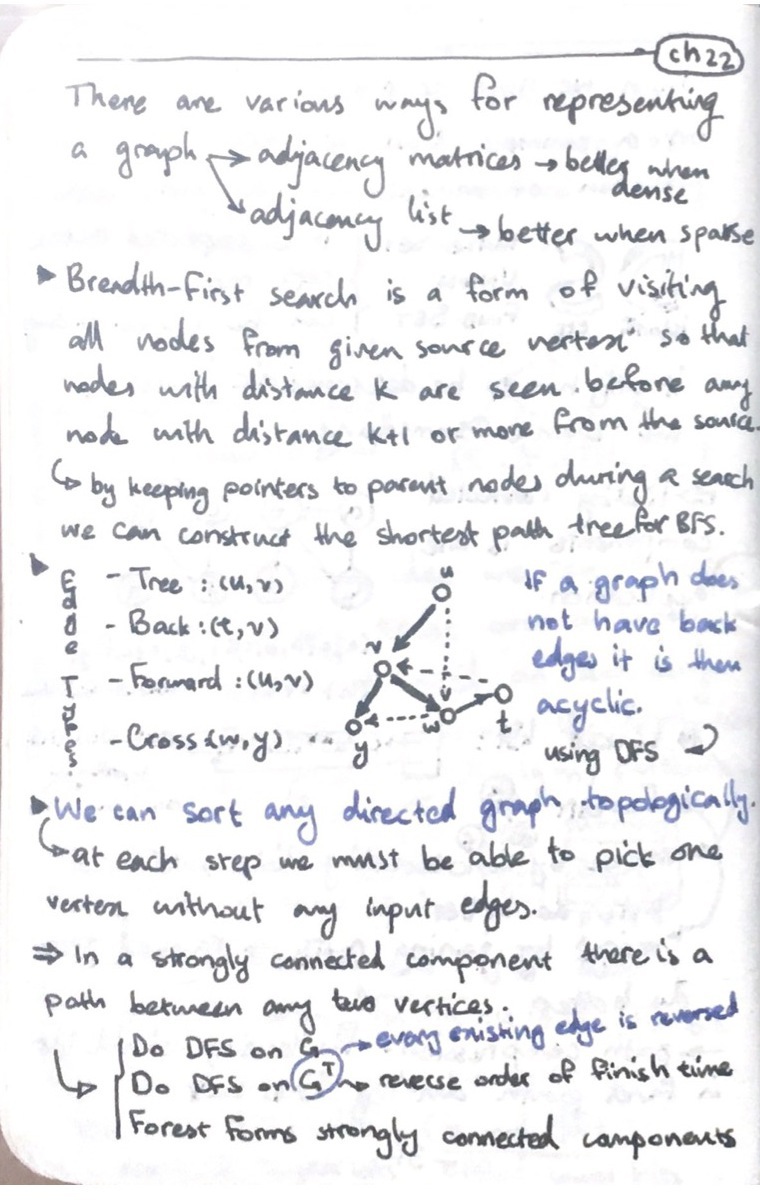 ch22
There are various ways for representing
a graph → adjacency matrices → better when
dense
adjacency list → better when sparse
▶ Breadth-First search is a form of visiting
all nodes from given source vertex so that
nodes with distance k are seen before any
node with distance k+1 or more from the source.
↳ by keeping pointers to parent nodes during a search
we can construct the shortest path tree for BFS.
▶ Edge Types:
- Tree : (u,v)
- Back : (t,v)
- Forward : (u,v)
- Cross : (w,y)
u
v
w
t
y
If a graph does
not have back
edges it is then
acyclic.
using DFS
▶ We can sort any directed graph topologically.
↳ at each step we must be able to pick one
vertex without any input edges.
⇒ In a strongly connected component there is a
path between any two vertices.
Do DFS on G → every existing edge is reversed
Do DFS on Gᵀ → reverse order of finish time
Forest forms strongly connected components